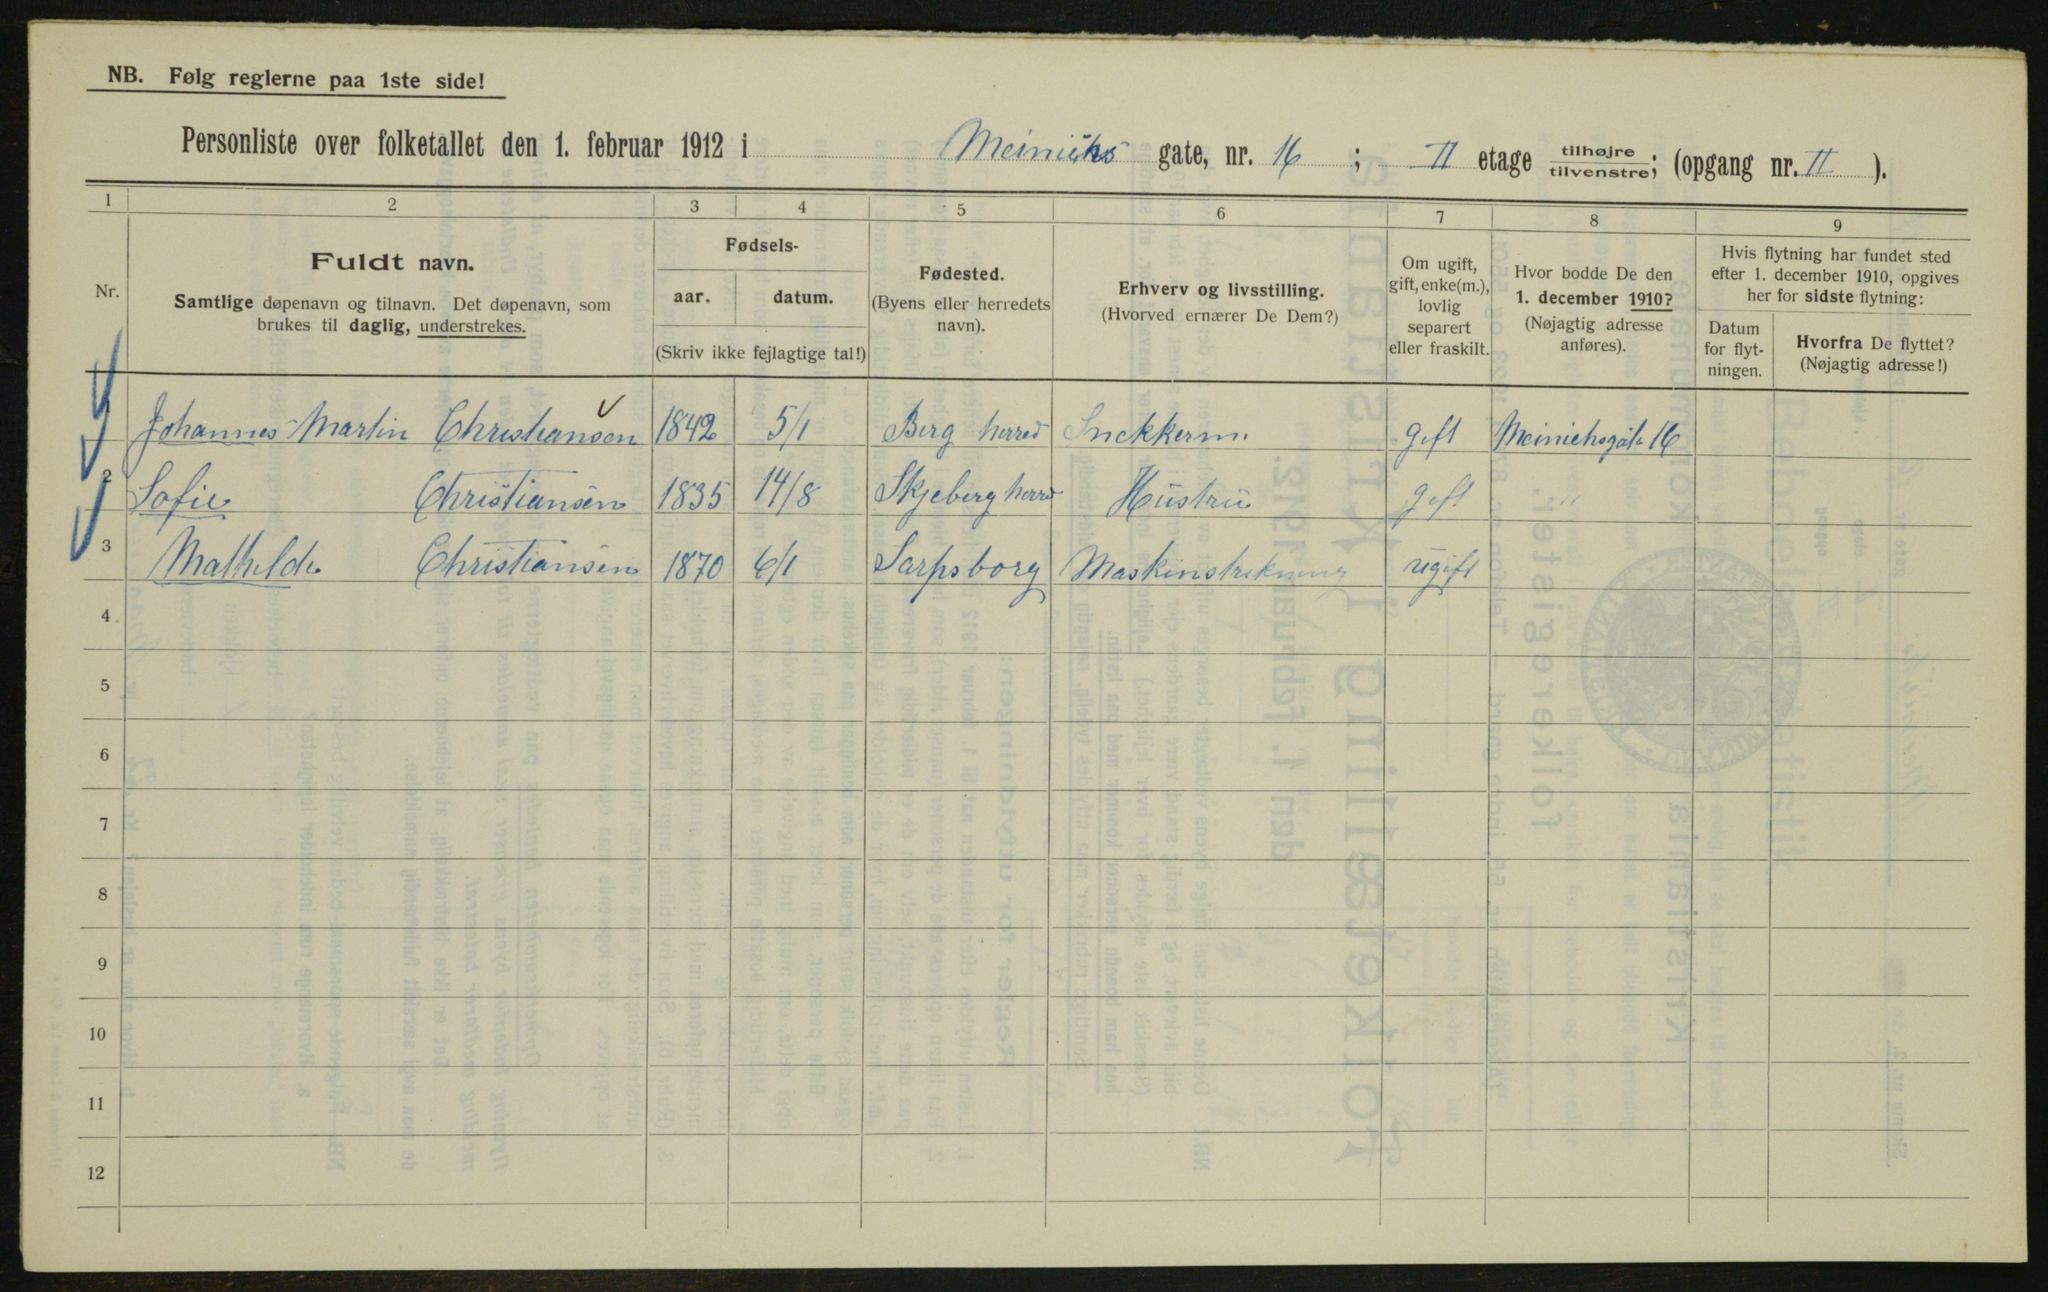 NB. Følg reglerne paa 1ste side!
Personliste over folketallet den 1. februar 1912 i Meinichs gate, nr. 16 ; II etage tilhøjre tilvenstre; (opgang nr. II ).
1 2 3 4 5 6 7 8 9
Nr.
Fuldt navn.
Samtlige døpenavn og tilnavn. Det døpenavn, som
brukes til daglig, understrekes.
Fødsels-
aar. datum.
(Skriv ikke fejlagtige tal!)
Fødested.
(Byens eller herredets
navn).
Erhverv og livsstilling.
(Hvorved ernærer De Dem?)
Om ugift,
gift, enke(m.),
lovlig
separert
eller fraskilt.
Hvor bodde De den
1. december 1910?
(Nøjagtig adresse
anføres).
Hvis flytning har fundet sted
efter 1. december 1910, opgives
her for sidste flytning:
Datum
for flyt-
ningen.
Hvorfra De flyttet?
(Nøjagtig adresse!)
1 Johannes Martin Christiansen 1842 5/1 Berg herred Snekkerm. gift Meinichsgate 16
2 Sofie Christiansen 1835 14/8 Skjeberg herred Hustru gift "
3 Mathilde Christiansen 1870 6/1 Sarpsborg ugift
4
5
6
7
8
9
10
11
12